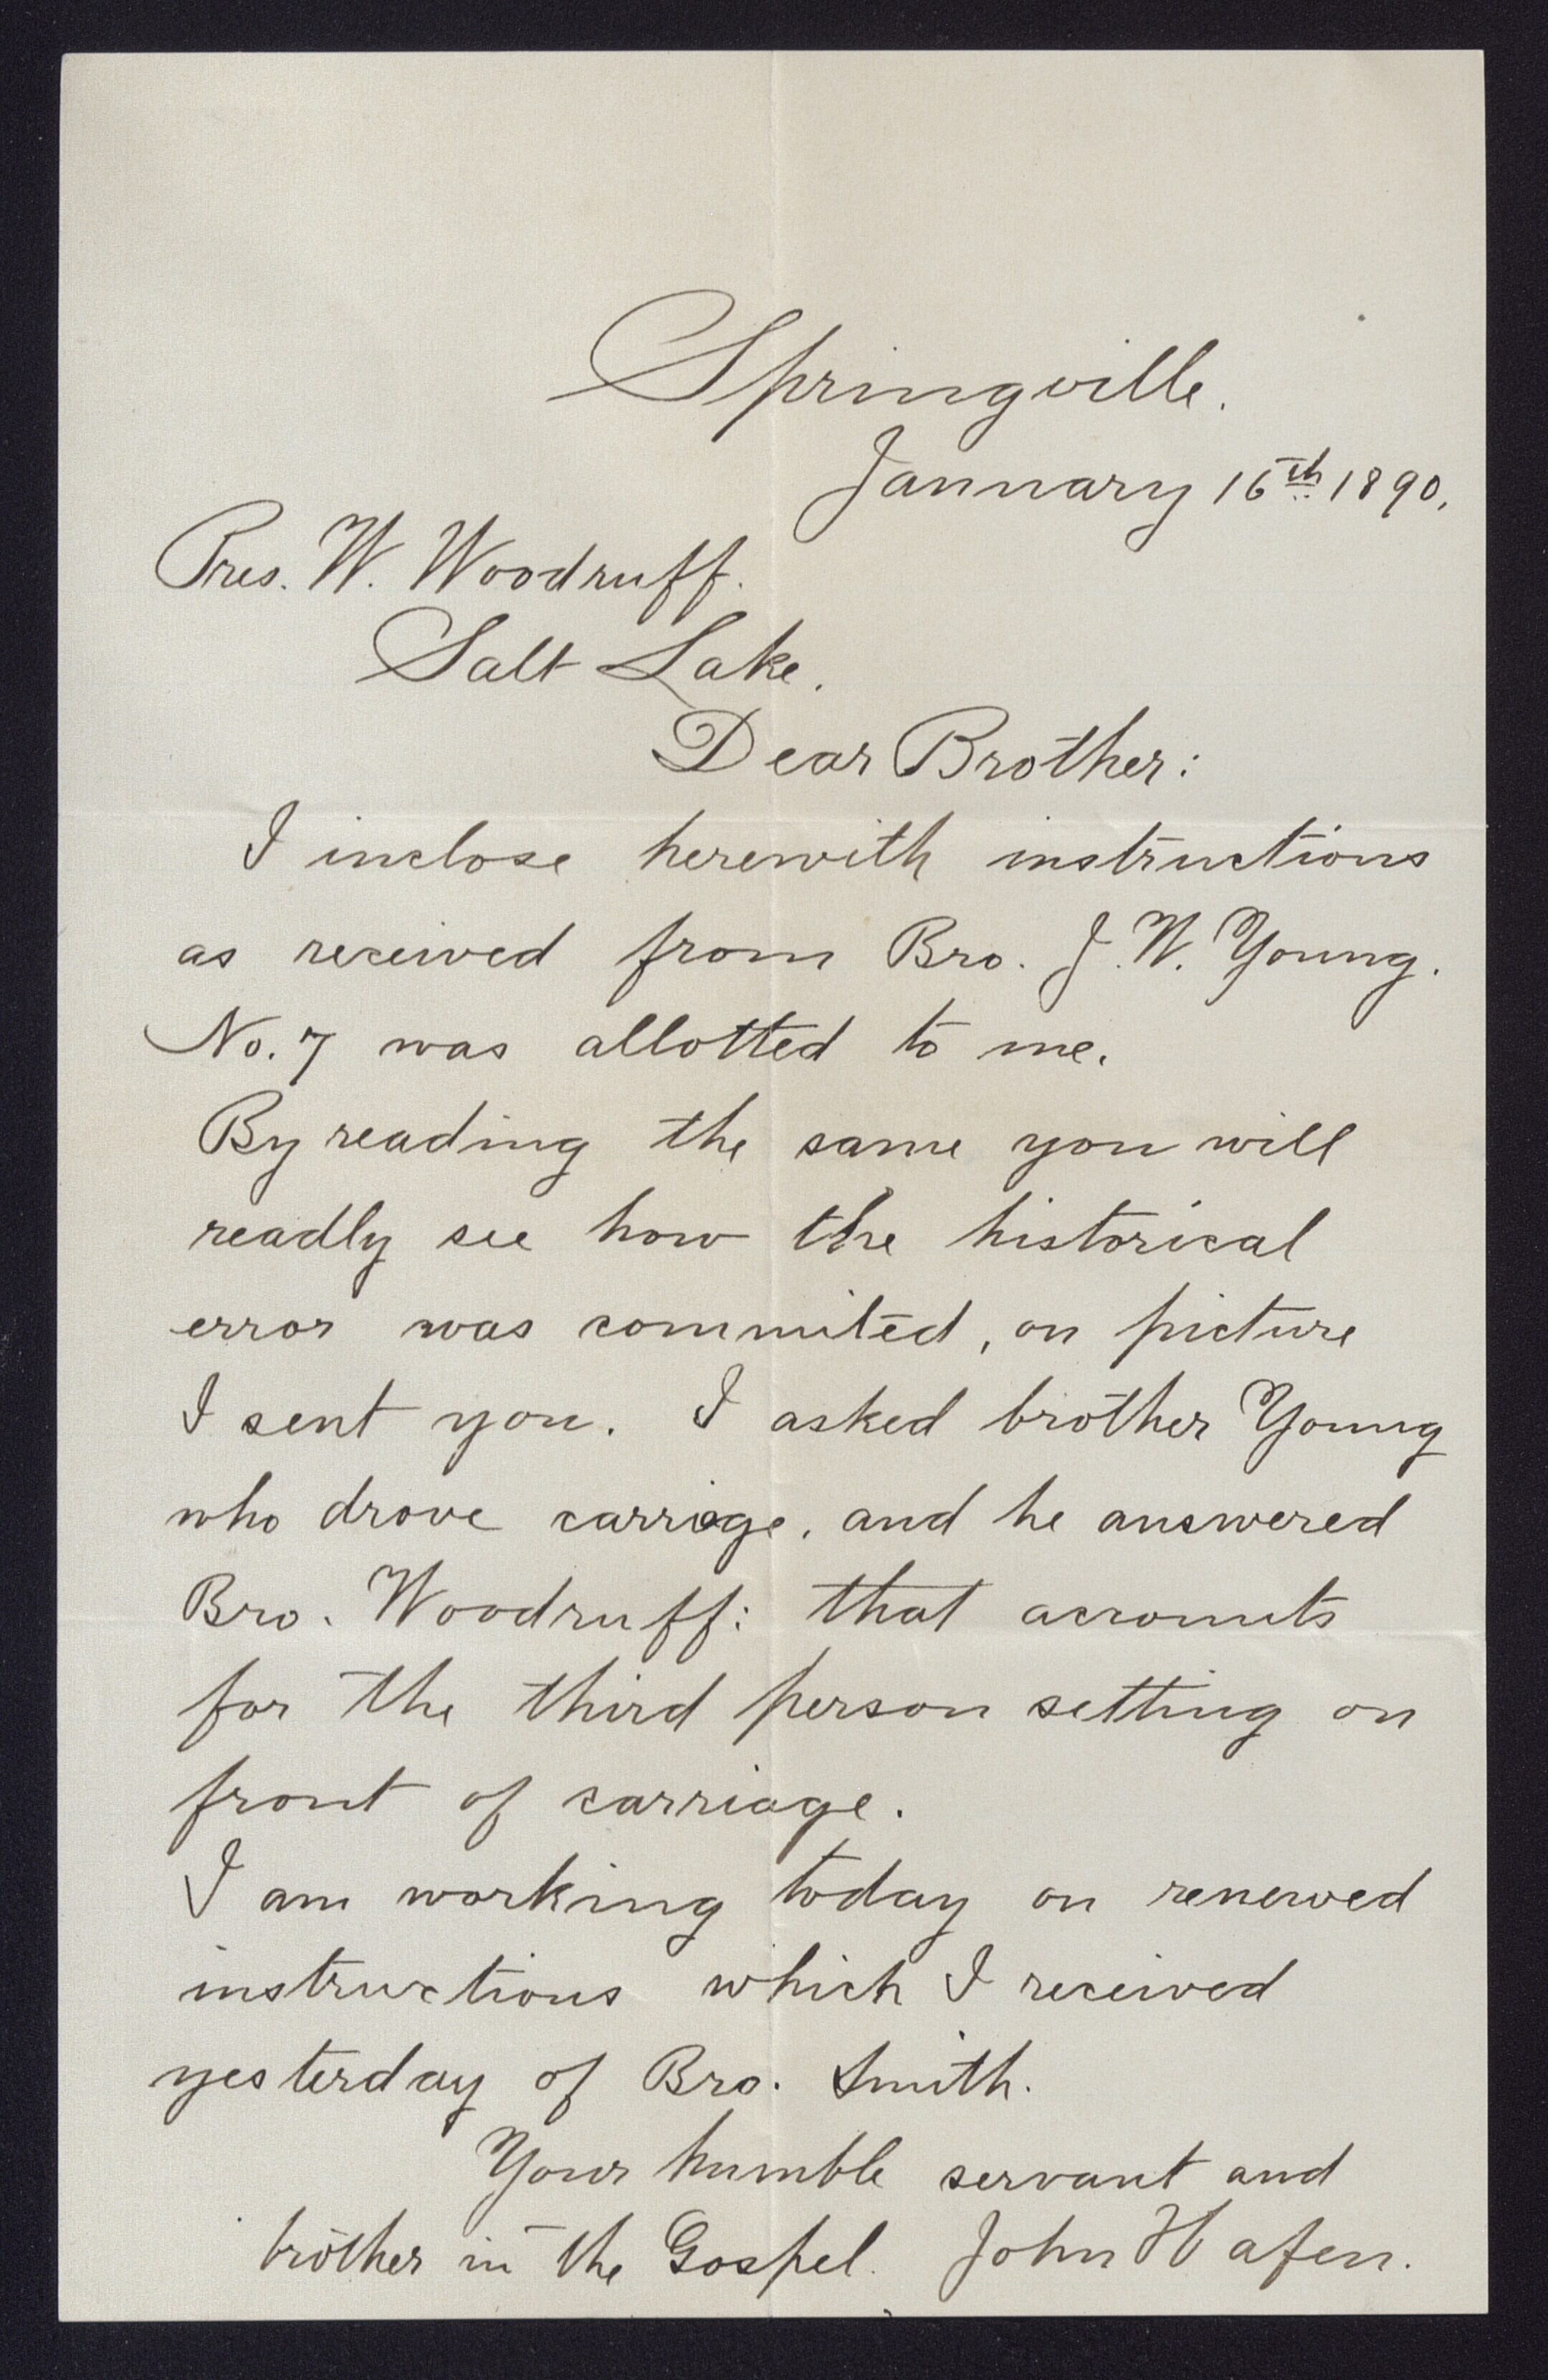 Springville.
January 16th 1890.
Pres. W. Woodruff.
Salt Lake.
Dear Brother:
I inclose herewith instructions
as received from Bro. J. W. Young.
No. 7 was allotted to me.
By reading the same you will
readly see how the historical
error was commited, on picture
I sent you. I asked brother Young
who drove carriage, and he answered
Bro. Woodruff: that accounts
for the third person setting on
front of carriage.
I am working today on renewed
instructions which I received
yesterday of Bro. Smith.
Your humble servant and
brother in the Gospel. John Hafen.